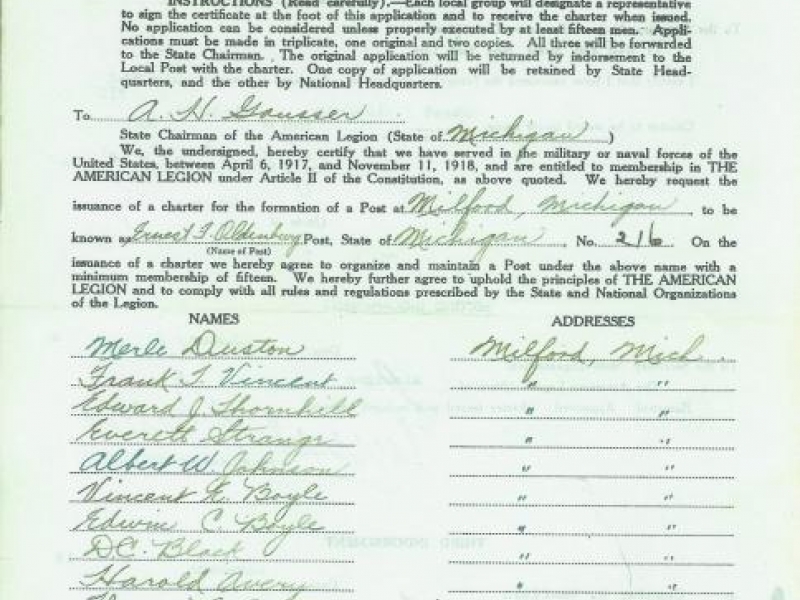 INSTRUCTIONS (Read carefully).—Each local group will designate a representative
to sign the certificate at the foot of this application and to receive the charter when issued.
No application can be considered unless properly executed by at least fifteen men. Appli-
cations must be made in triplicate, one original and two copies. All three will be forwarded
to the State Chairman. The original application will be returned by indorsement to the
Local Post with the charter. One copy of application will be retained by State Head-
quarters, and the other by National Headquarters.
To A. H. Gansser
State Chairman of the American Legion (State of Michigan)
We, the undersigned, hereby certify that we have served in the military or naval forces of the
United States, between April 6, 1917, and November 11, 1918, and are entitled to membership in THE
AMERICAN LEGION under Article II of the Constitution, as above quoted. We hereby request the
issuance of a charter for the formation of a Post at Milford, Michigan, to be
known as Ernest F. Oldenburg Post, State of Michigan, No. 216. On the
(Name of Post)
issuance of a charter we hereby agree to organize and maintain a Post under the above name with a
minimum membership of fifteen. We hereby further agree to uphold the principles of THE AMERICAN
LEGION and to comply with all rules and regulations prescribed by the State and National Organizations
of the Legion.
NAMES ADDRESSES
Merle Duston Milford, Mich.
Frank T Vincent " "
Edward J. Thornhill " "
Everett Strange " "
Albert W Johnson " "
Vincent E. Boyle " "
Edwin C. Boyle " "
D.C. Black " "
Harold Avery " "